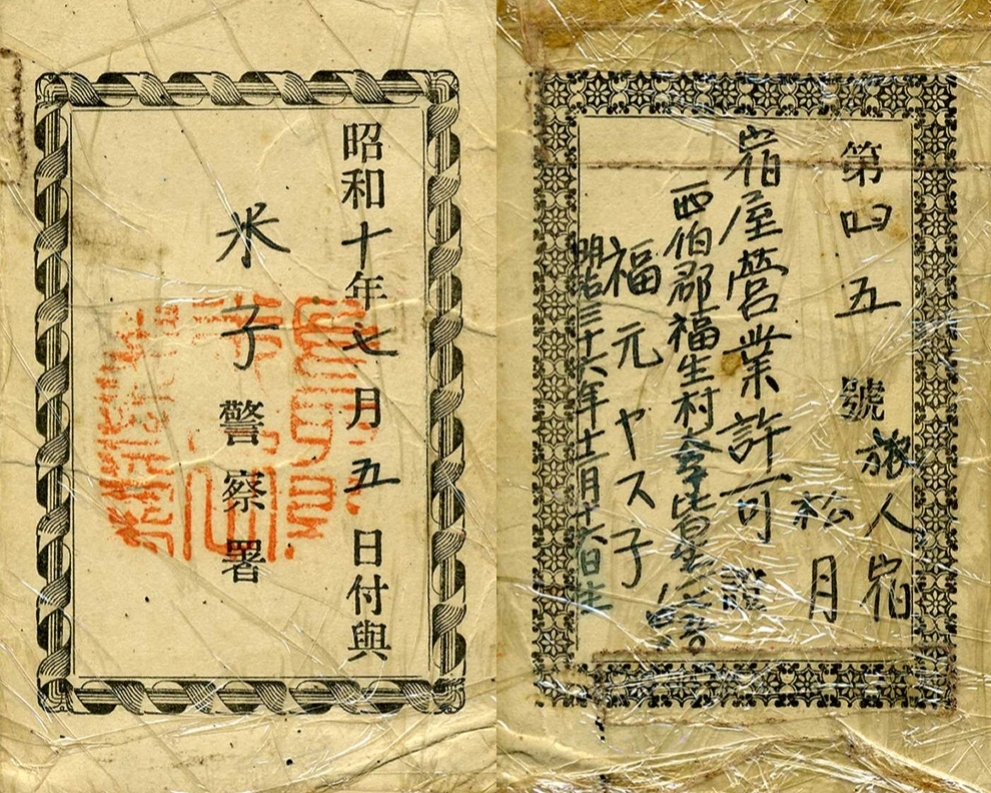 第四五號
旅人宿
松月
宿屋營業許可證
西伯郡福生村大字皆生
福元ヤス子
明治三十六年 月十六日生
昭和十年七月五日付與
米子警察署